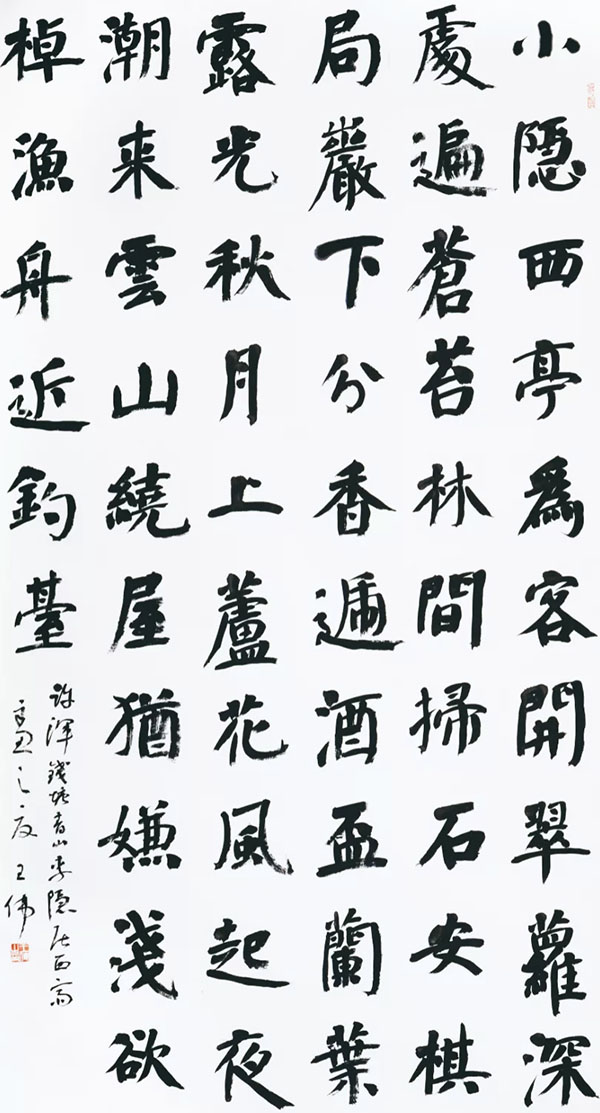 小隱西亭爲客開翠蘿深
處遍蒼苔林間掃石安棋
局巖下分香遞酒盃蘭葉
露光秋月上蘆花風起夜
潮来雲山繞屋猶嫌淺欲
棹漁舟近釣臺
許渾錢塘青山李隱居西齋
之夏王偉